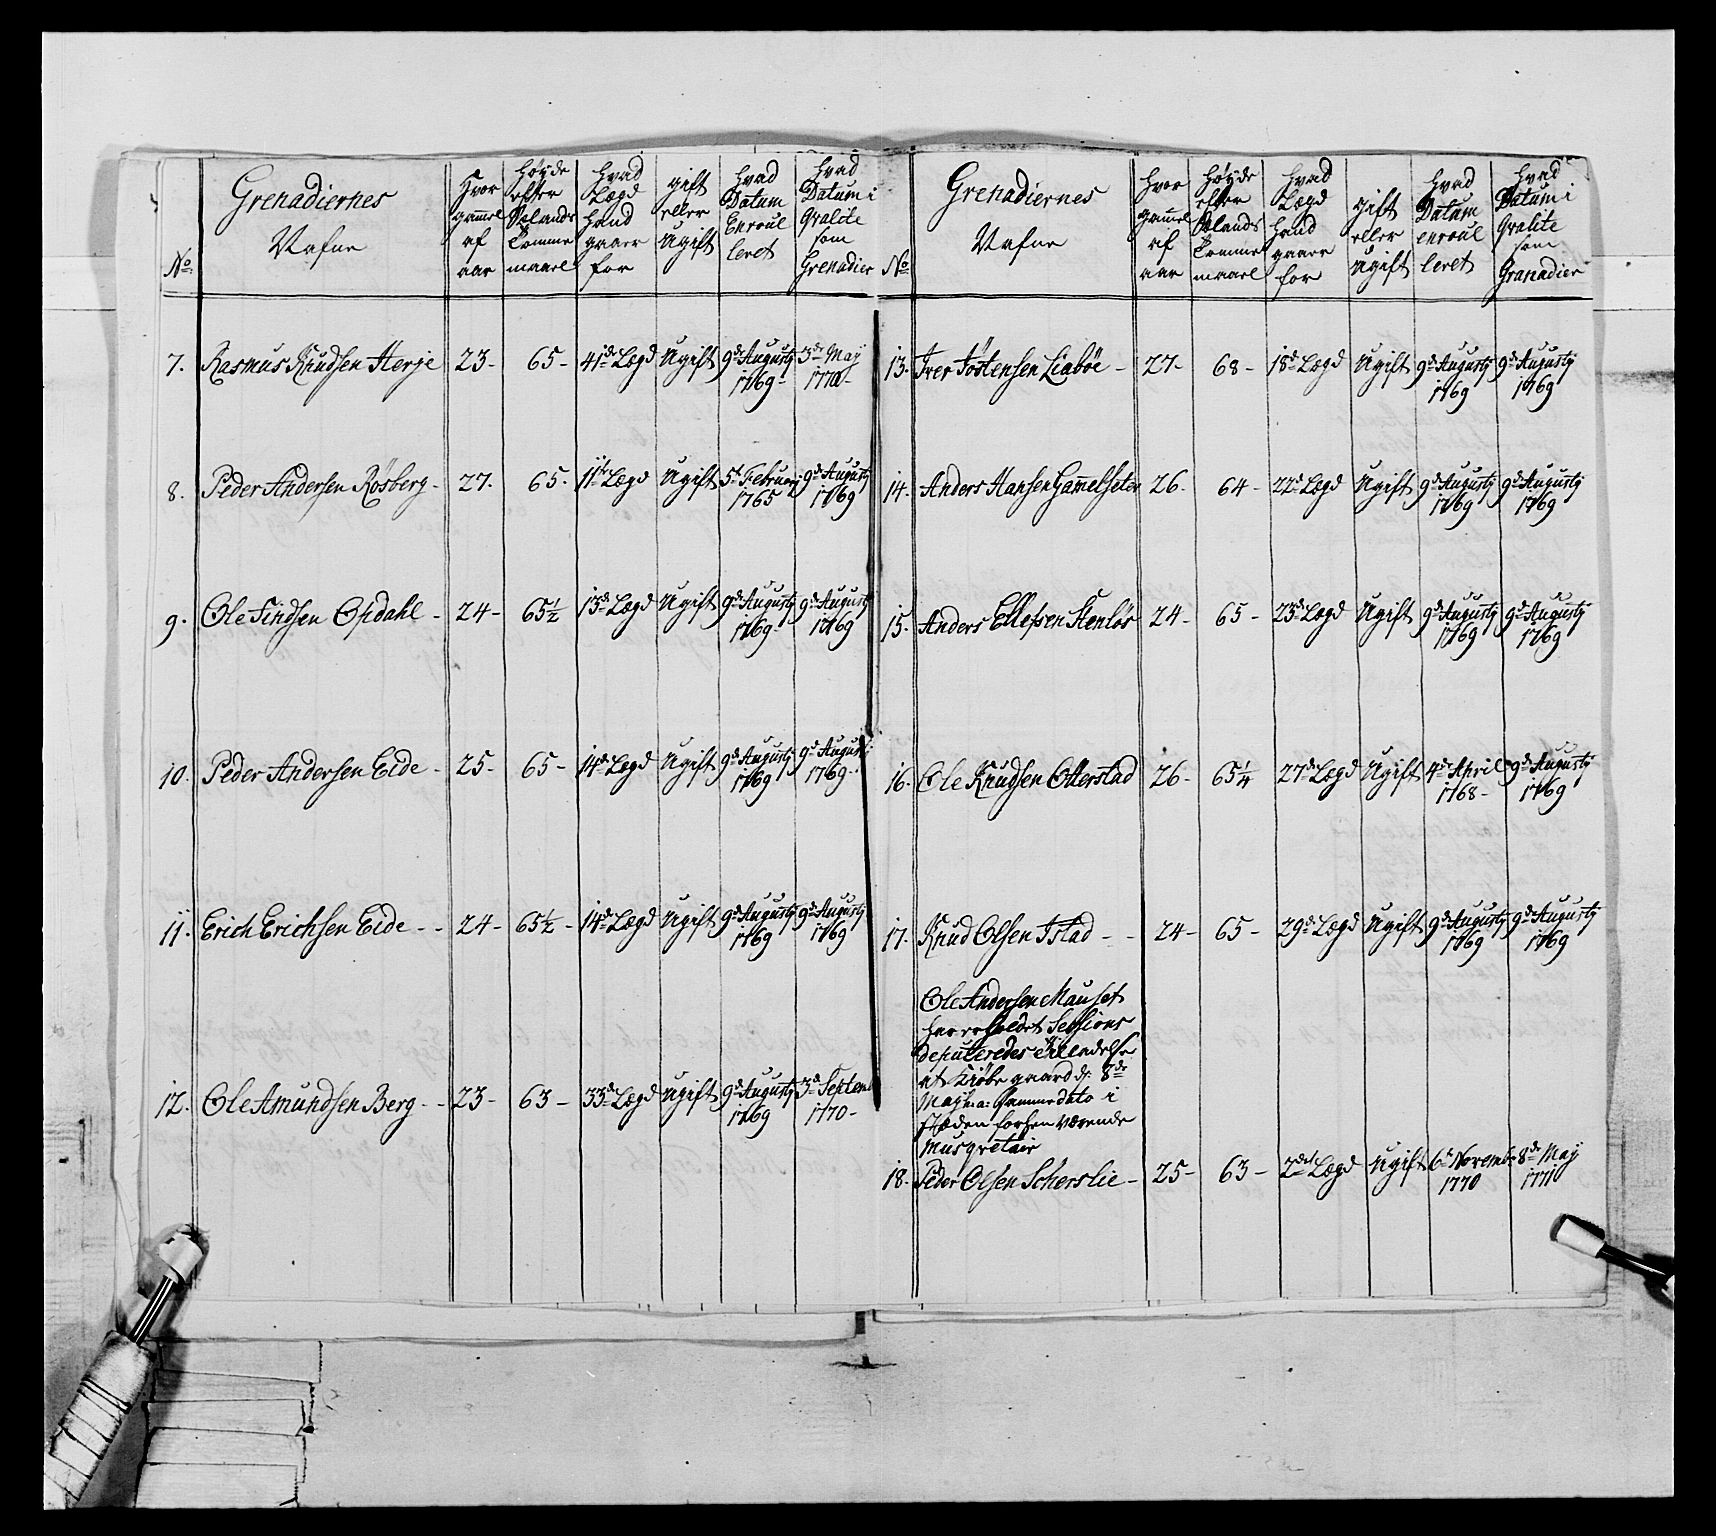 No. | Grenadiernes Nafne | Hvor gammel af aar | Høyde efter Sælands Tomme maael | Hvad Lægd hand gaaer for | gift eller Ugift | Hvad Datum Enroul leret | Hvad Datum i Qvalite som Grenadier
7. Rasmus Knudsen Herje 23- 65- 41de Lægd Ugift 9de Augusty 1769- 3de May 1770-
8. Peder Andersen Rösberg- 27. 65. 11te Lægd Ugift 5te February 1765 9de Augusty 1769
9. Ole Findsen Opdahl- 24- 65½ 13de Lægd Ugift 9de Augusty 1769- 9de Augusty 1769
10. Peder Andersen Eide- 25- 65- 14de Lægd Ugift 9de Augusty 1769 9de Augusti 1769-
11. Erich Erichsen Eide-- 24- 65½- 14de Lægd Ugift 9de Augusty 1769 9de Augusty 1769
12. Ole Amundsen Berg-- 23- 63- 33de Lægd Ugift 9de Augusty 1769 3de Septem 1770-
No. | Grenadiernes Nafne | Hvor gammel af aar | Høyde efter Sælands Tomme maael | Hvad Lægd Hand gaaer for | gift eller Ugift | Hvad Datum enroul leret | Hvad Datum i Qvalite som Granadier
13. Iver Jöstensen Liaböe- 27- 68- 18de Lægd Ugift 9de Augusty 1769 9de Augusty 1769
14. Anders Hansen Gammelseter 26- 64- 22de Lægd Ugift 9de Augusty 1769 9de Augusty 1769
15. Anders Ellefsen Stenlös 24- 65- 23de Lægd Ugift 9de Augusty 1769 9de Augusty 1769
16. Ole Knudsen Otterstad 26- 65¼ 27de Lægd Ugift 4de April 1768- 9de Augusty 1769
17. Knud Olsen Istad-- 24- 65- 29de Lægd Ugift 9de Augusty 1769 9de Augusty 1769
Ole Andersen Mauset
har erholdet Sessions
deputeredes Tilladelse
at Kiöbe gaard d: 8de
May h:a: Samme dato i
stæden forhen værende
Musqvetair
18. Peder Olsen Scherslie- 25- 63- 2det Lægd Ugift 6te Novembr 1770 8de May 1771